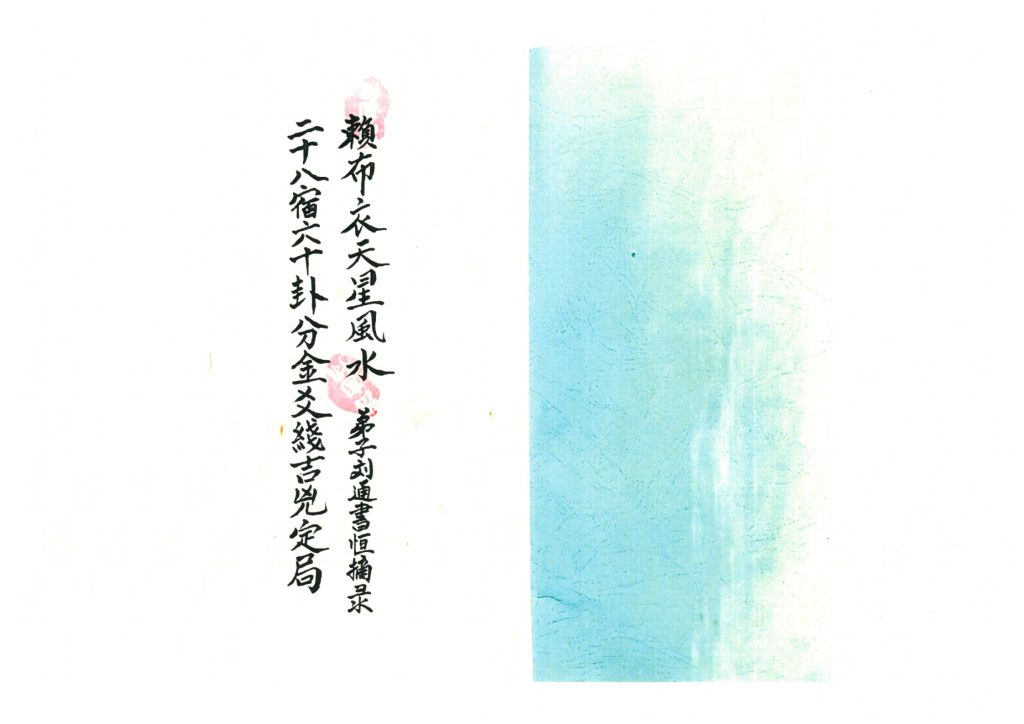 賴布衣天星風水 弟子刘通書恒摘录
二十八宿六十卦分金爻綫吉兇定局